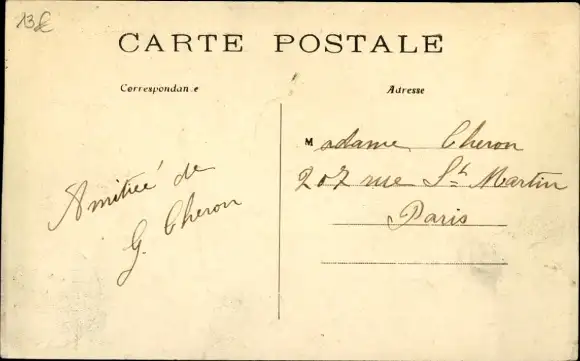 13€
CARTE POSTALE
Correspondance
Adresse
Amitiée de
G. Cheron
Madame Cheron
207 rue St Martin
Paris